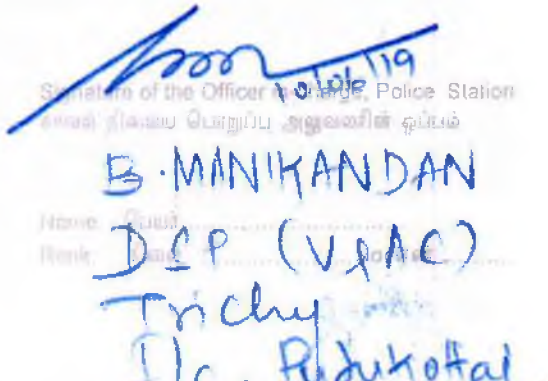 10/06/19
Signature of the Officer in-charge, Police Station
காவல் நிலைய பொறுப்பு அலுவலரின் ஒப்பம்
B. MANIKANDAN
Name பெயர்
DSP (V&AC)
Rank
Trichy
I/c. Pudukottai